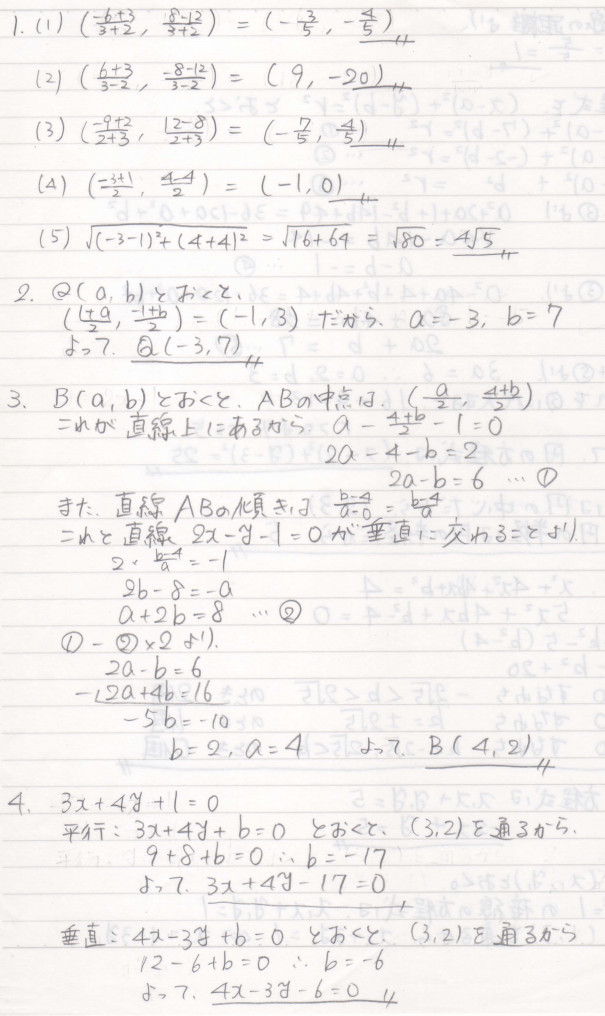 1. (1) ((-6+3)/(3+2), (8-12)/(3+2)) = (-3/5, -4/5)
(2) ((6+3)/(3-2), (-8-12)/(3-2)) = (9, -20)
(3) ((-9+2)/(2+3), (12-8)/(2+3)) = (-7/5, 4/5)
(4) ((-3+1)/2, (4-4)/2) = (-1, 0)
(5) √((-3-1)²+(4+4)²) = √(16+64) = √80 = 4√5
2. Q(a, b)とおくと、
((1+a)/2, (-1+b)/2) = (-1, 3) だから、a=-3, b=7
よって、Q(-3, 7)
3. B(a, b)とおくと、ABの中点は、(a/2, (4+b)/2)
これが直線上にあるから a - (4+b)/2 - 1 = 0
2a-4-b=2
2a-b=6 … ①
また、直線ABの傾きは (b-4)/(a-0) = (b-4)/a
これと直線 2x-y-1=0 が垂直に交わることより
2・(b-4)/a = -1
2b-8=-a
a+2b=8 … ②
①-②×2より、
2a-b=6
-)2a+4b=16
-5b=-10
b=2, a=4 よって、B(4, 2)
4. 3x+4y+1=0
平行: 3x+4y+b=0 とおくと、(3, 2)を通るから、
9+8+b=0 ∴ b=-17
よって、3x+4y-17=0
垂直: 4x-3y+b=0 とおくと、(3, 2)を通るから
12-6+b=0 ∴ b=-6
よって、4x-3y-6=0